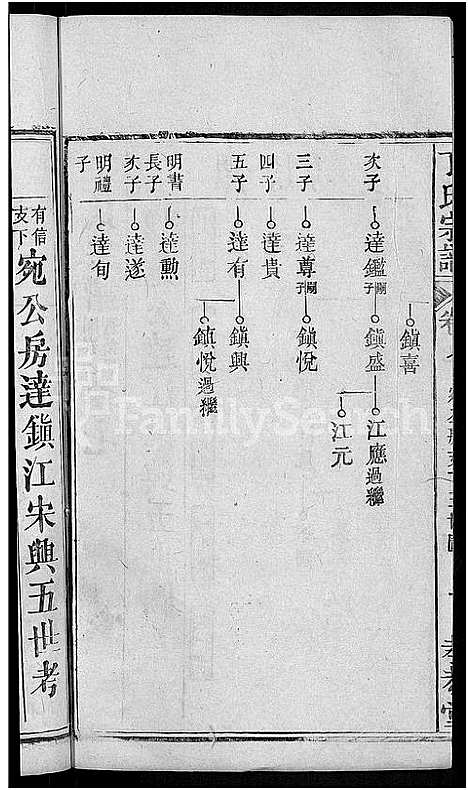 丁氏宗譜
鎮喜
次子 達鑑 嗣子 鎮盛 江應過繼
江元
三子 達尊 嗣子 鎮悅
四子 達貴
五子 達有 鎮興
鎮悅過繼
明書長子 達勲
次子 達遂
明禮子 達旬
有信支下 宛公房達鎮江宋興五世考
FamilySearch